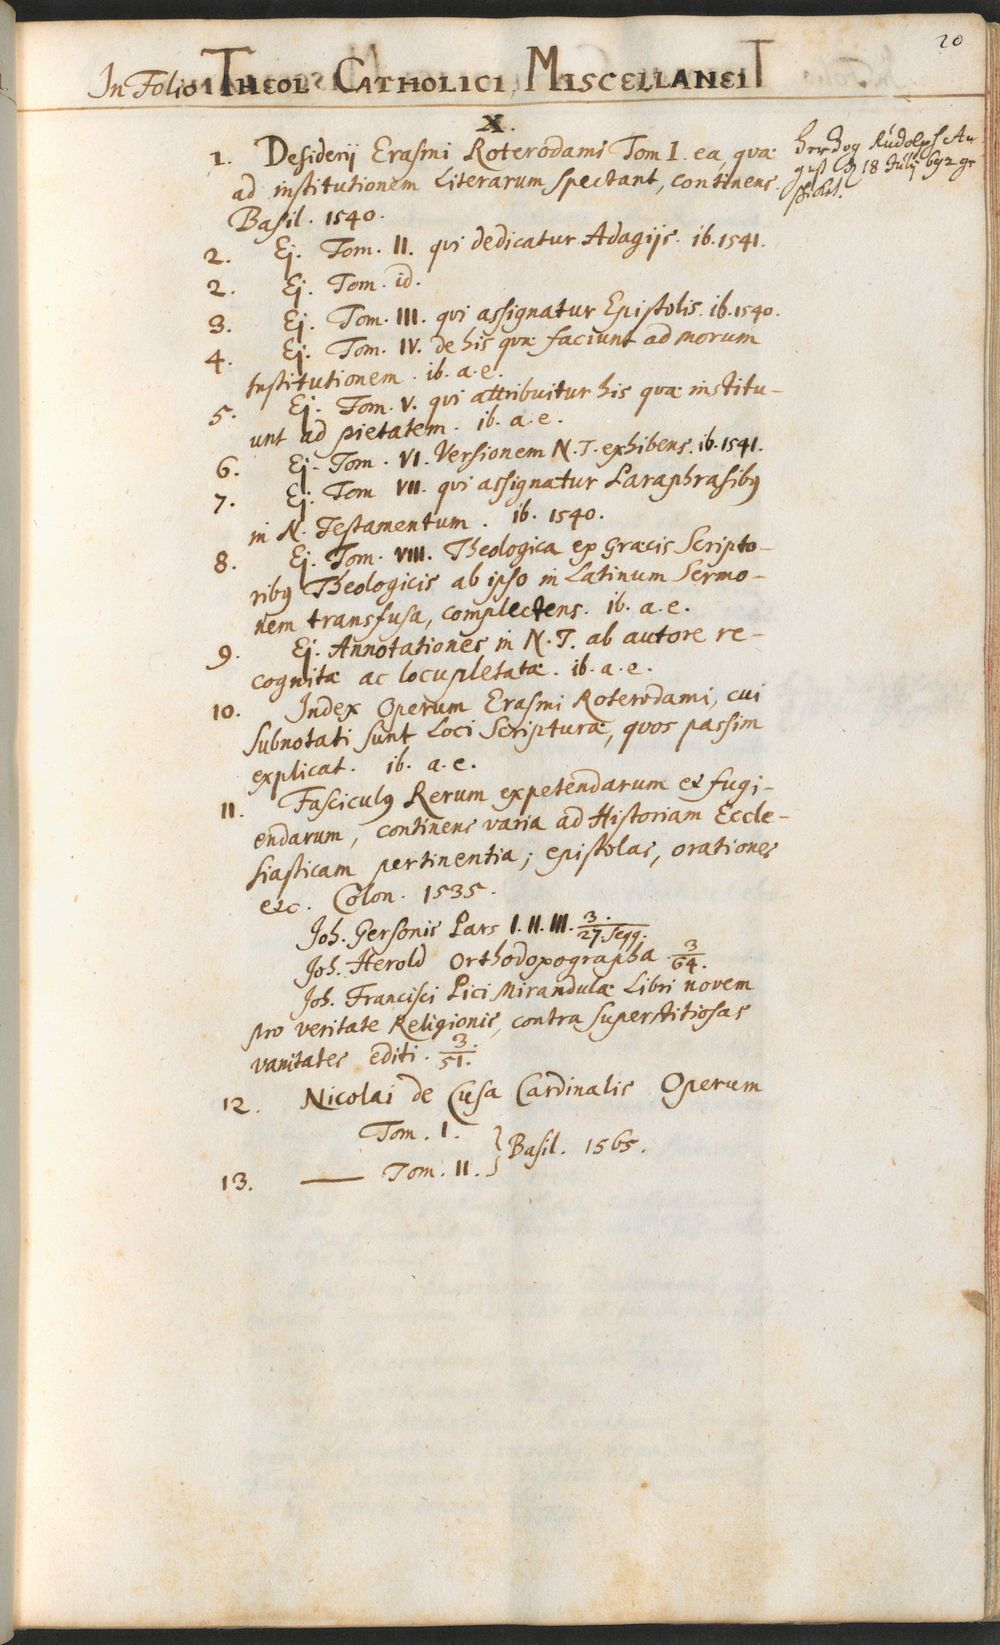 20
In Folio THEOL CATHOLICI, MISCELLANEI
X.
1. Desiderij Erasmi Roterodami Tom I. ea, quæ
ad institutionem Literarum spectant, continens
Basil. 1540.
Herzog Rudolph Au-
gust 18 Julij 692 ge
schickt.
2. Ej. Tom. II. qvi dedicatur Adagijs. ib. 1541.
2. Ej. Tom. id.
3. Ej. Tom. III. qvi assignatur Epistolis. ib. 1540.
4. Ej. Tom. IV. de his qvæ faciunt ad morum
Institutionem. ib. a. e.
5. Ej. Tom. V. qvi attribuitur his quæ institu-
unt ad pietatem. ib. a. e.
6. Ej. Tom. VI. Versionem N. T. exhibens. ib. 1541.
7. Ej. Tom VII. qvi assignatur Paraphrasibꝰ
in N. Testamentum. ib. 1540.
8. Ej. Tom. VIII. Theologica ex Græcis Scripto-
ribꝰ Theologicis ab ipso in Latinum Sermo-
nem transfusa, complectens. ib. a. e.
9. Ej. Annotationes in N. T. ab autore re-
cognitæ ac locupletatæ. ib. a. e.
10. Index Operum Erasmi Roterodami, cui
subnotati sunt Loci Scripturæ, quos passim
explicat. ib. a. e.
11. Fasciculꝰ Rerum expetendarum et fugi-
endarum, continens varia ad Historiam Eccle-
siasticam pertinentia; epistolas, orationes
etc. Colon. 1535.
Joh. Gersonis Pars I. II. III. 3./27. seqq.
Joh. Herold Orthodoxographa 3/64.
Joh. Francisci Pici Mirandulæ Libri novem
pro veritate Religionis, contra superstitiosas
vanitates editi. 3./51.
12. Nicolai de Cusa Cardinalis Operum
Tom. I. } Basil. 1565.
13. — Tom. II.